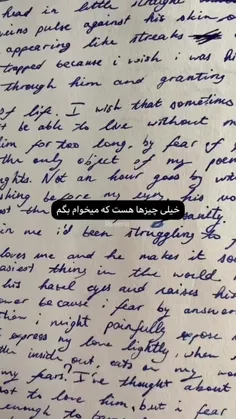 head in little straight
veins pulse against his skin
appearing like streaks
trapped because i wish i was his
through him and granting
of life. I wish that sometimes
t be able to live without
him for too long, by fear of
the only object of my
ghts. Not an hour goes by with
before my eyes his
خیلی چیزها هست که میخوام بگم
in me i'd been struggling to
loves me and he makes it so
easiest thing in the world.
his hazel eyes and raises his
because i fear by answer
then i might painfully expose
express my love lightly, when
the inside out, eats on my
my fears. I've thought about
not to love him, but i fear
enough to